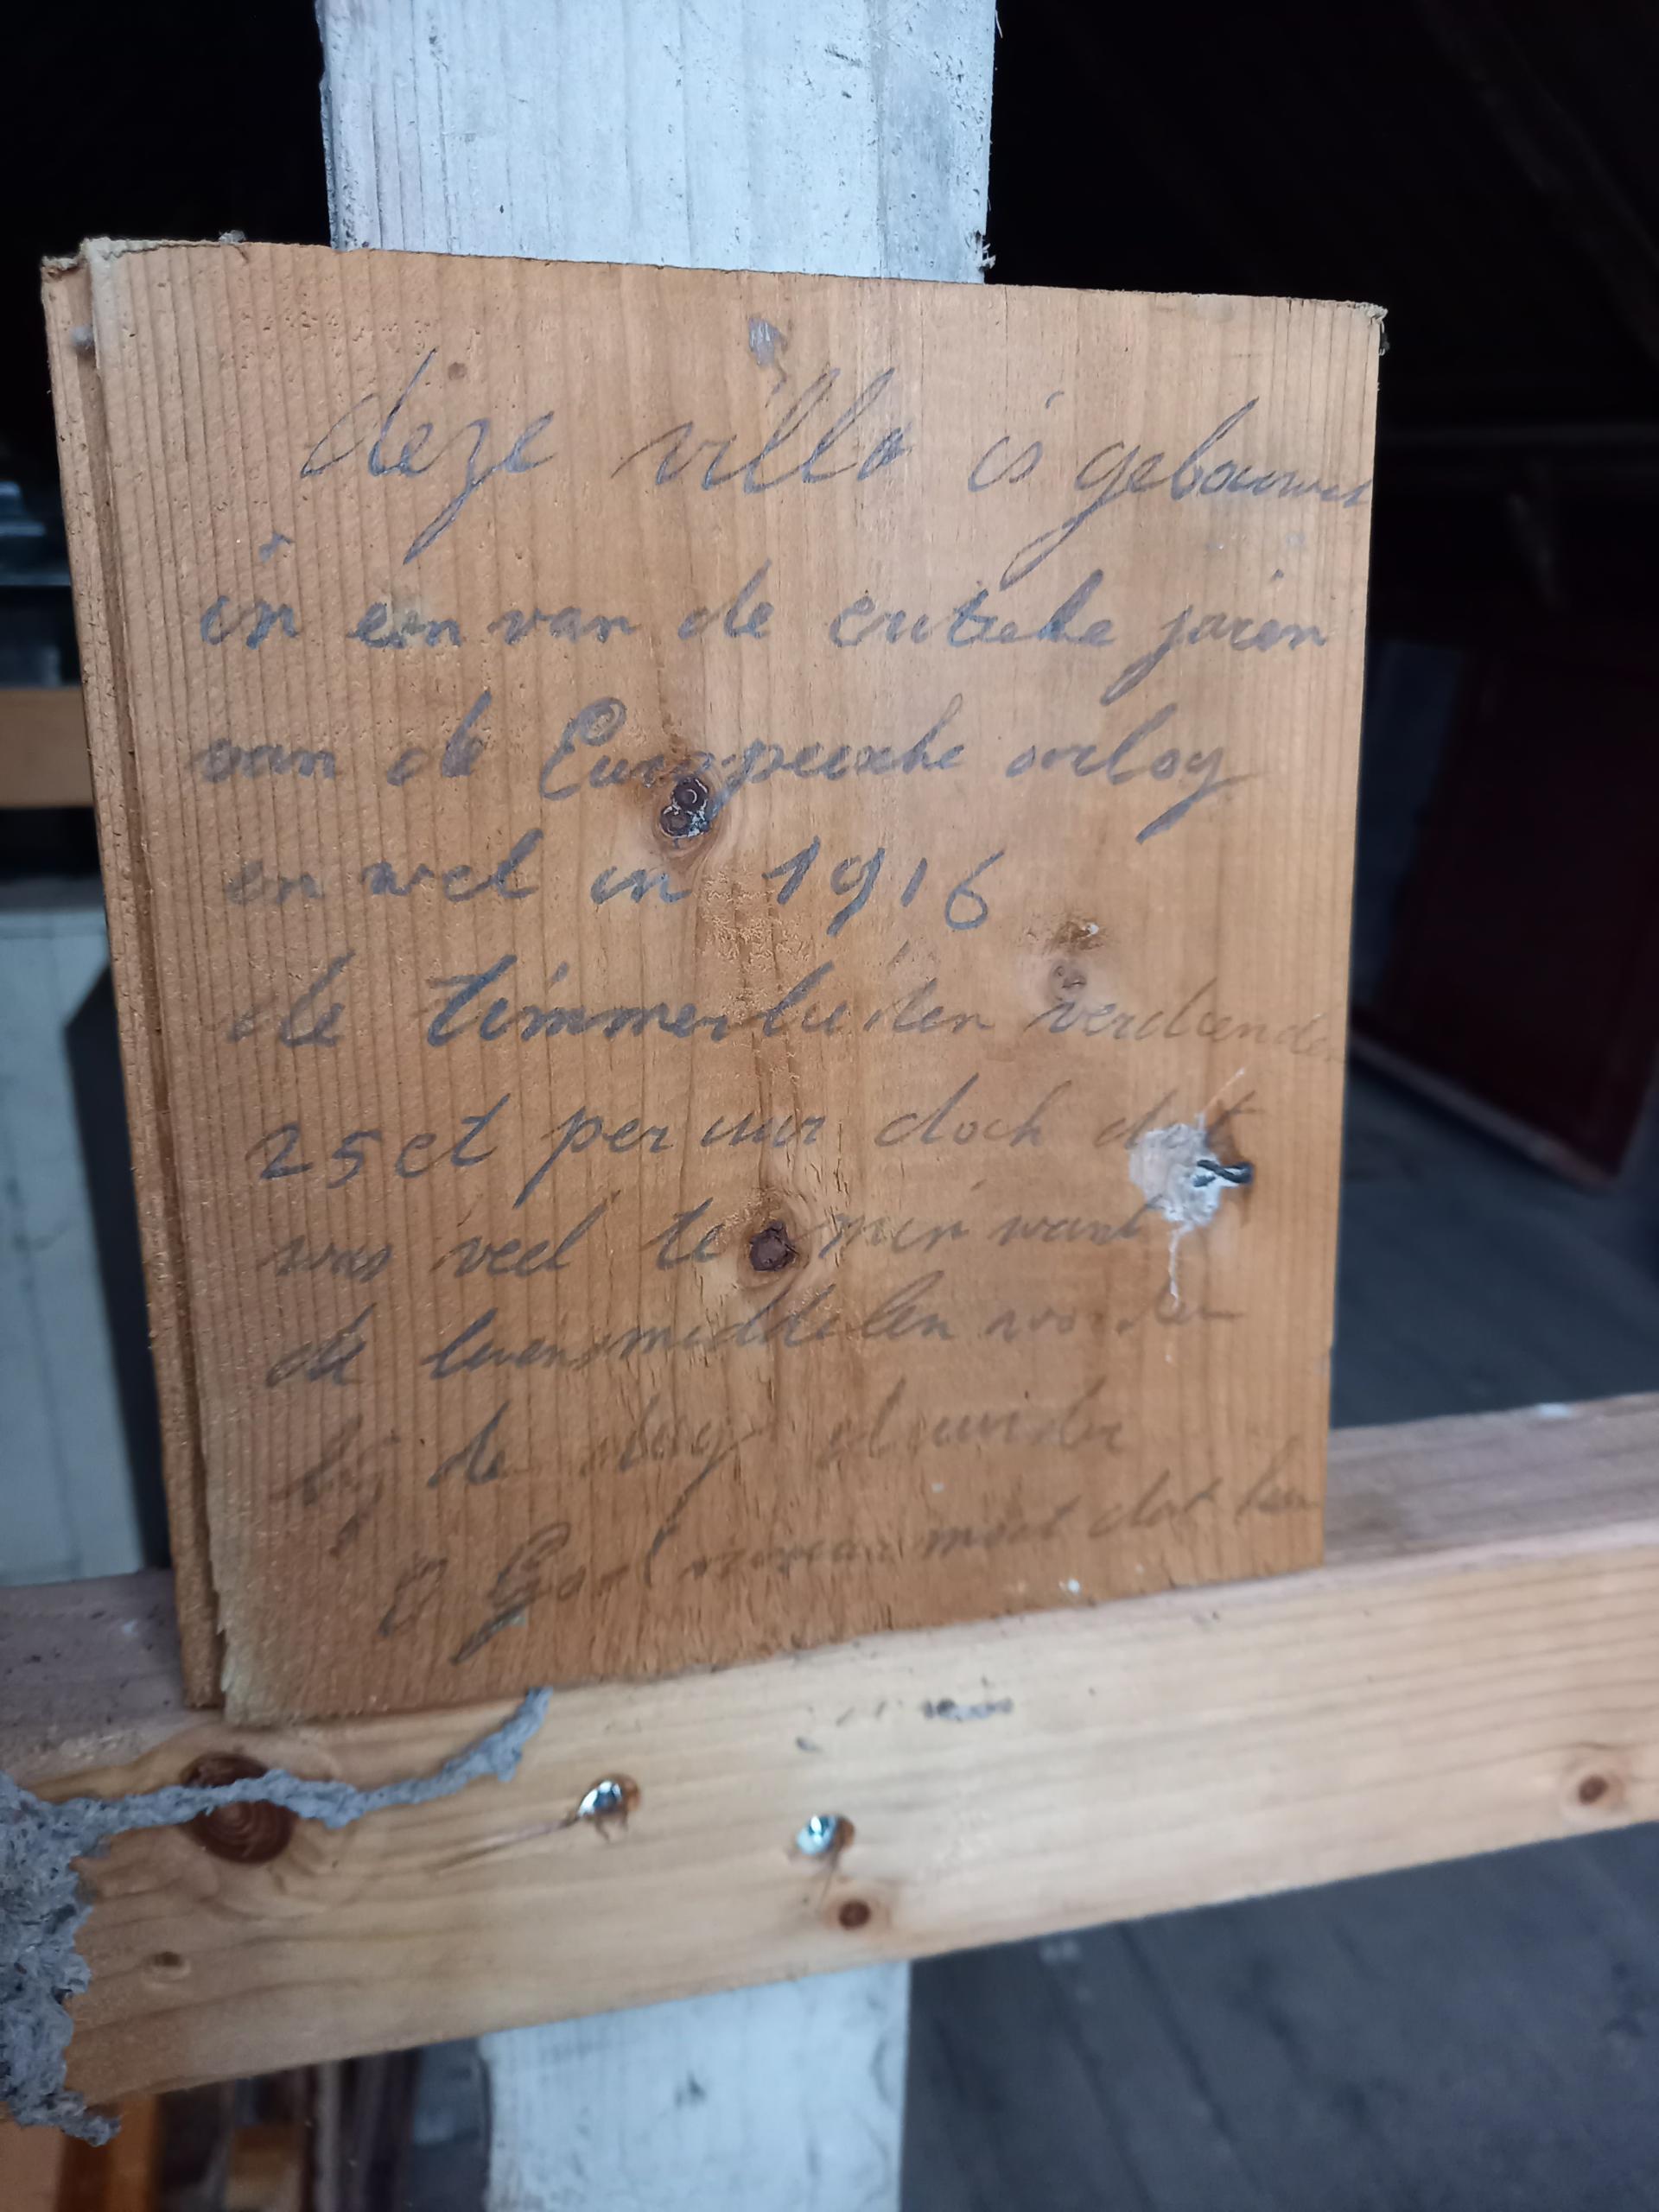 deze villa is gebouwd
in een van de critieke jaren
van de Europeesche oorlog
en wel in 1916
de timmerlieden verdienden
25 ct per uur doch dat
was veel te min want
de levensmiddelen worden
bij de dag duurder
O God waar moet dat heen